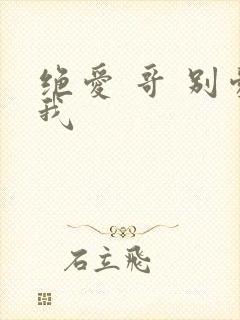 绝爱 哥 别
我
石立飛